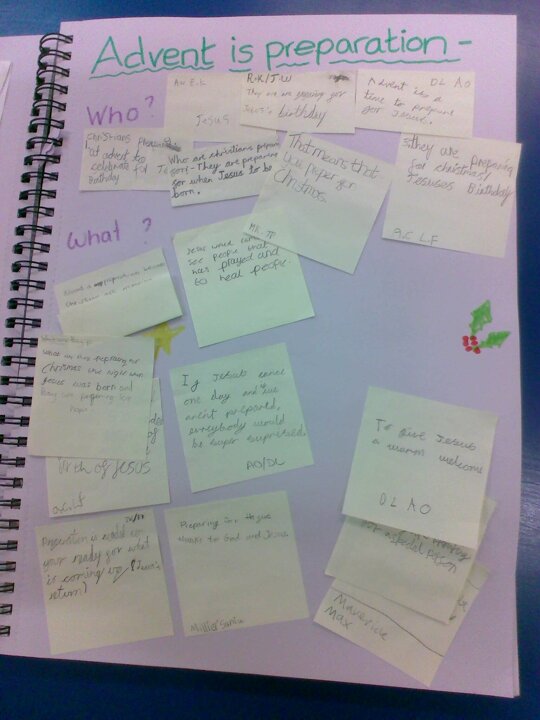 Advent is preparation -
Who?
AW E.K
Jesus
R.K/J.W
They are are preparing for
Jesus's birthday
DL AO
Advent is a
time to prepare
for Jesus.
Christians
at advent to
celebrate
Birthday
Who are christians prepar
for - They are preparing
for when Jesus to be
born.
That means that
we
Christmas.
MK TP
they are preparing
for christmas/
Jesuses Birthday
L.F
What?
Jesus
see people that
was prayed and
to heal people.
what
Christmas the night when
Jesus was born and
they are preparing for
him
of
birth of JESUS
a.c. l.f
If Jesus came
one day and we
arent prepared,
everybody would
be super supprised.
AO/DL
To give Jesus
a warm welcome
DL AO
for a special person
Maverick
Max
Preparation is
your ready for what
is coming up
return)
Preparing for to give
thanks to God and Jesus
Millie